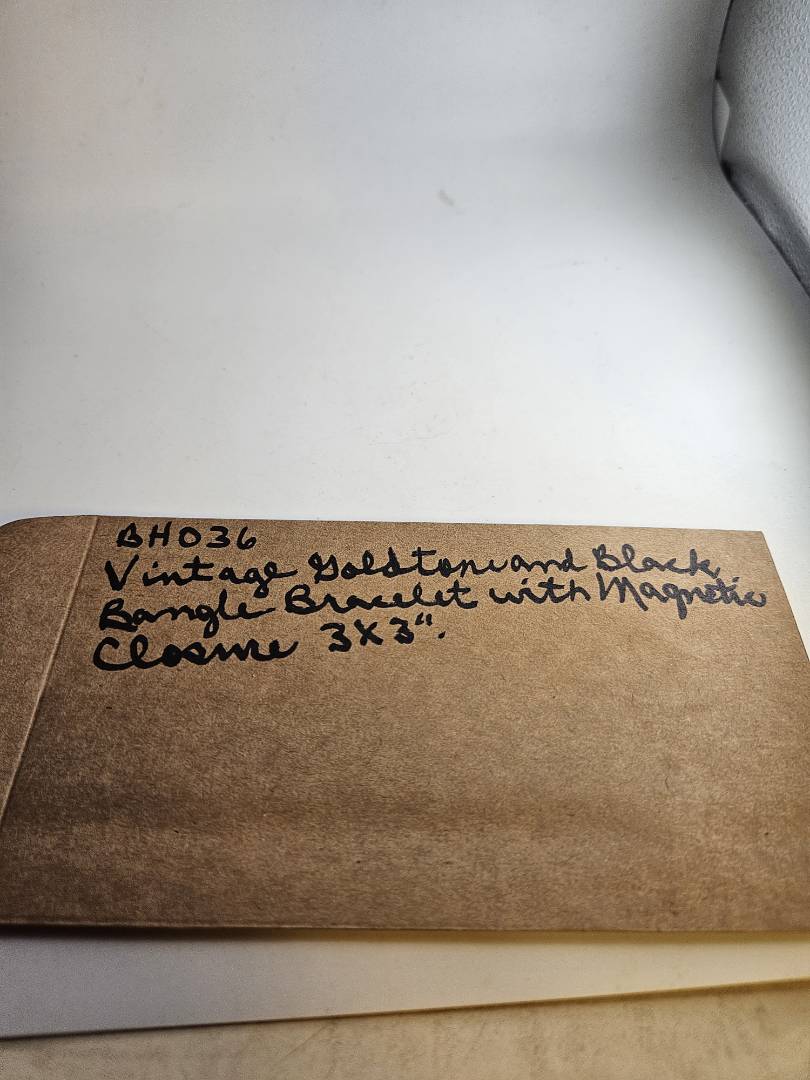 BH036
Vintage Goldtone and Black
Bangle Bracelet with Magnetic
Closure 3X3".